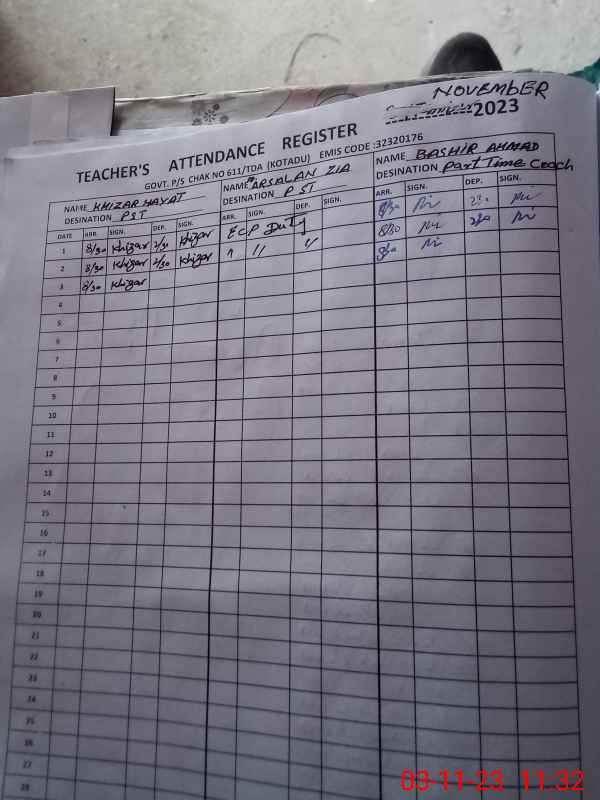 NOVEMBER
2023
TEACHER'S ATTENDANCE REGISTER
GOVT. P/S CHAK NO 611/TDA (KOTADU) EMIS CODE :32320176
NAME KHIZAR HAYAT NAME ARSALAN ZIA NAME BASHIR AHMAD
DESINATION PST DESINATION PST DESINATION Part Time Coach
DATE ARR. SIGN. DEP. SIGN. ARR. SIGN. DEP. SIGN. ARR. SIGN. DEP. SIGN.
1 8/30 Khizar 2/30 Khizar ECP Duty 8/30
2 8/30 Khizar 2/30 Khizar " " " 8/30 2/30
3 8/30 Khizar 8/30
4
5
6
7
8
9
10
11
12
13
14
15
16
17
18
19
20
21
22
23
24
25
26
27
28
03-11-23 11:32